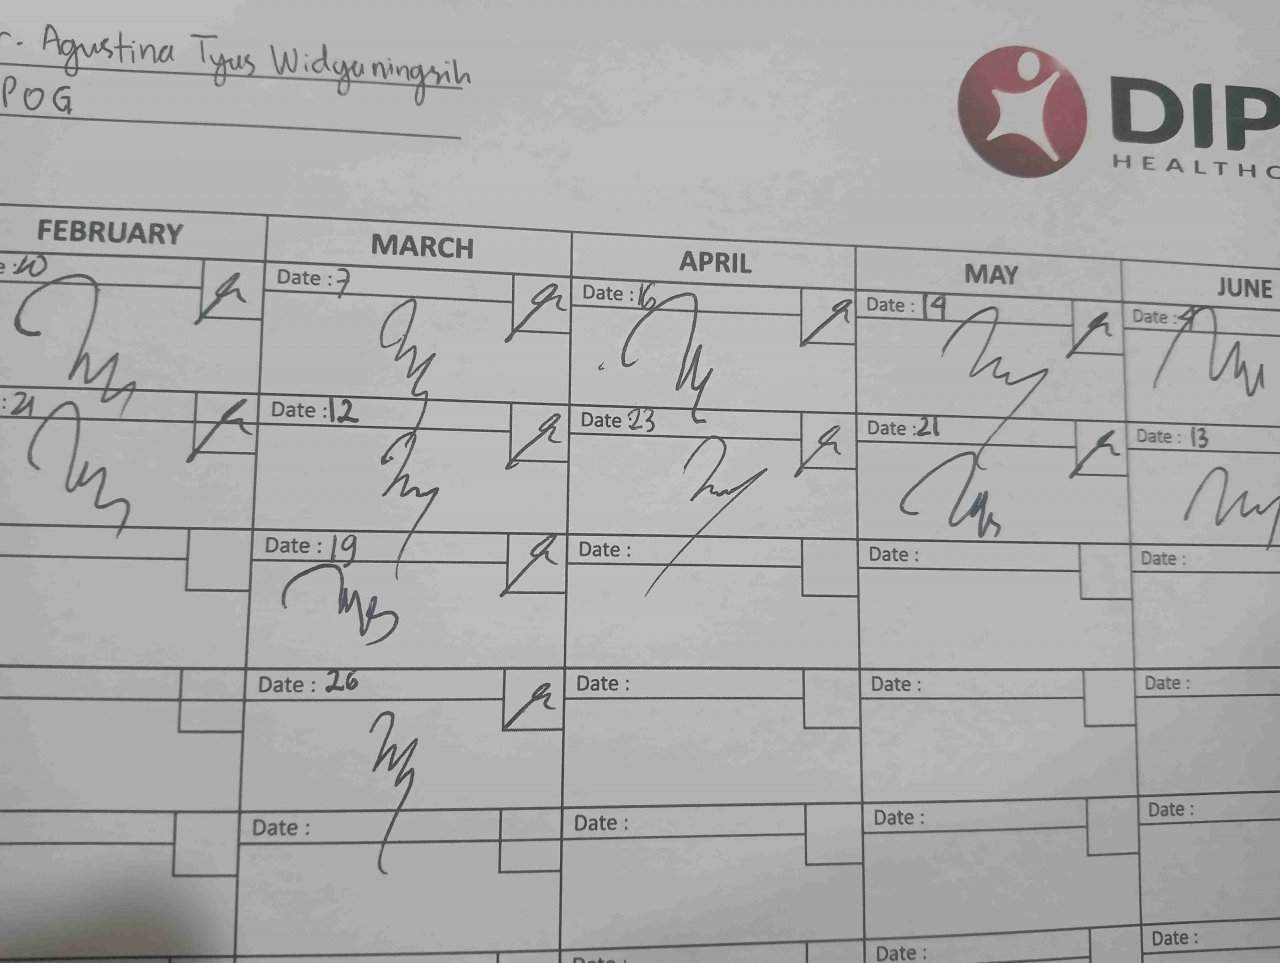 r. Agustina Tyas Widyaningsih
POG
DIP
HEALTHC
FEBRUARY MARCH APRIL MAY JUNE
e : 20 Date : 7 Date : 16 Date : 14 Date : 4
: 21 Date : 12 Date : 23 Date : 21 Date : 13
Date : 19 Date : Date : Date :
Date : 26 Date : Date : Date :
Date : Date : Date : Date :
Date : Date : Date :